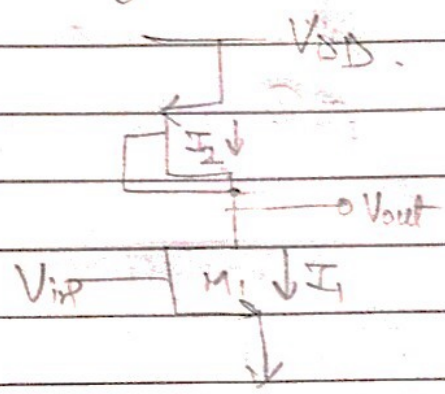 VDD.
I2
Vout
Vin M1 I1